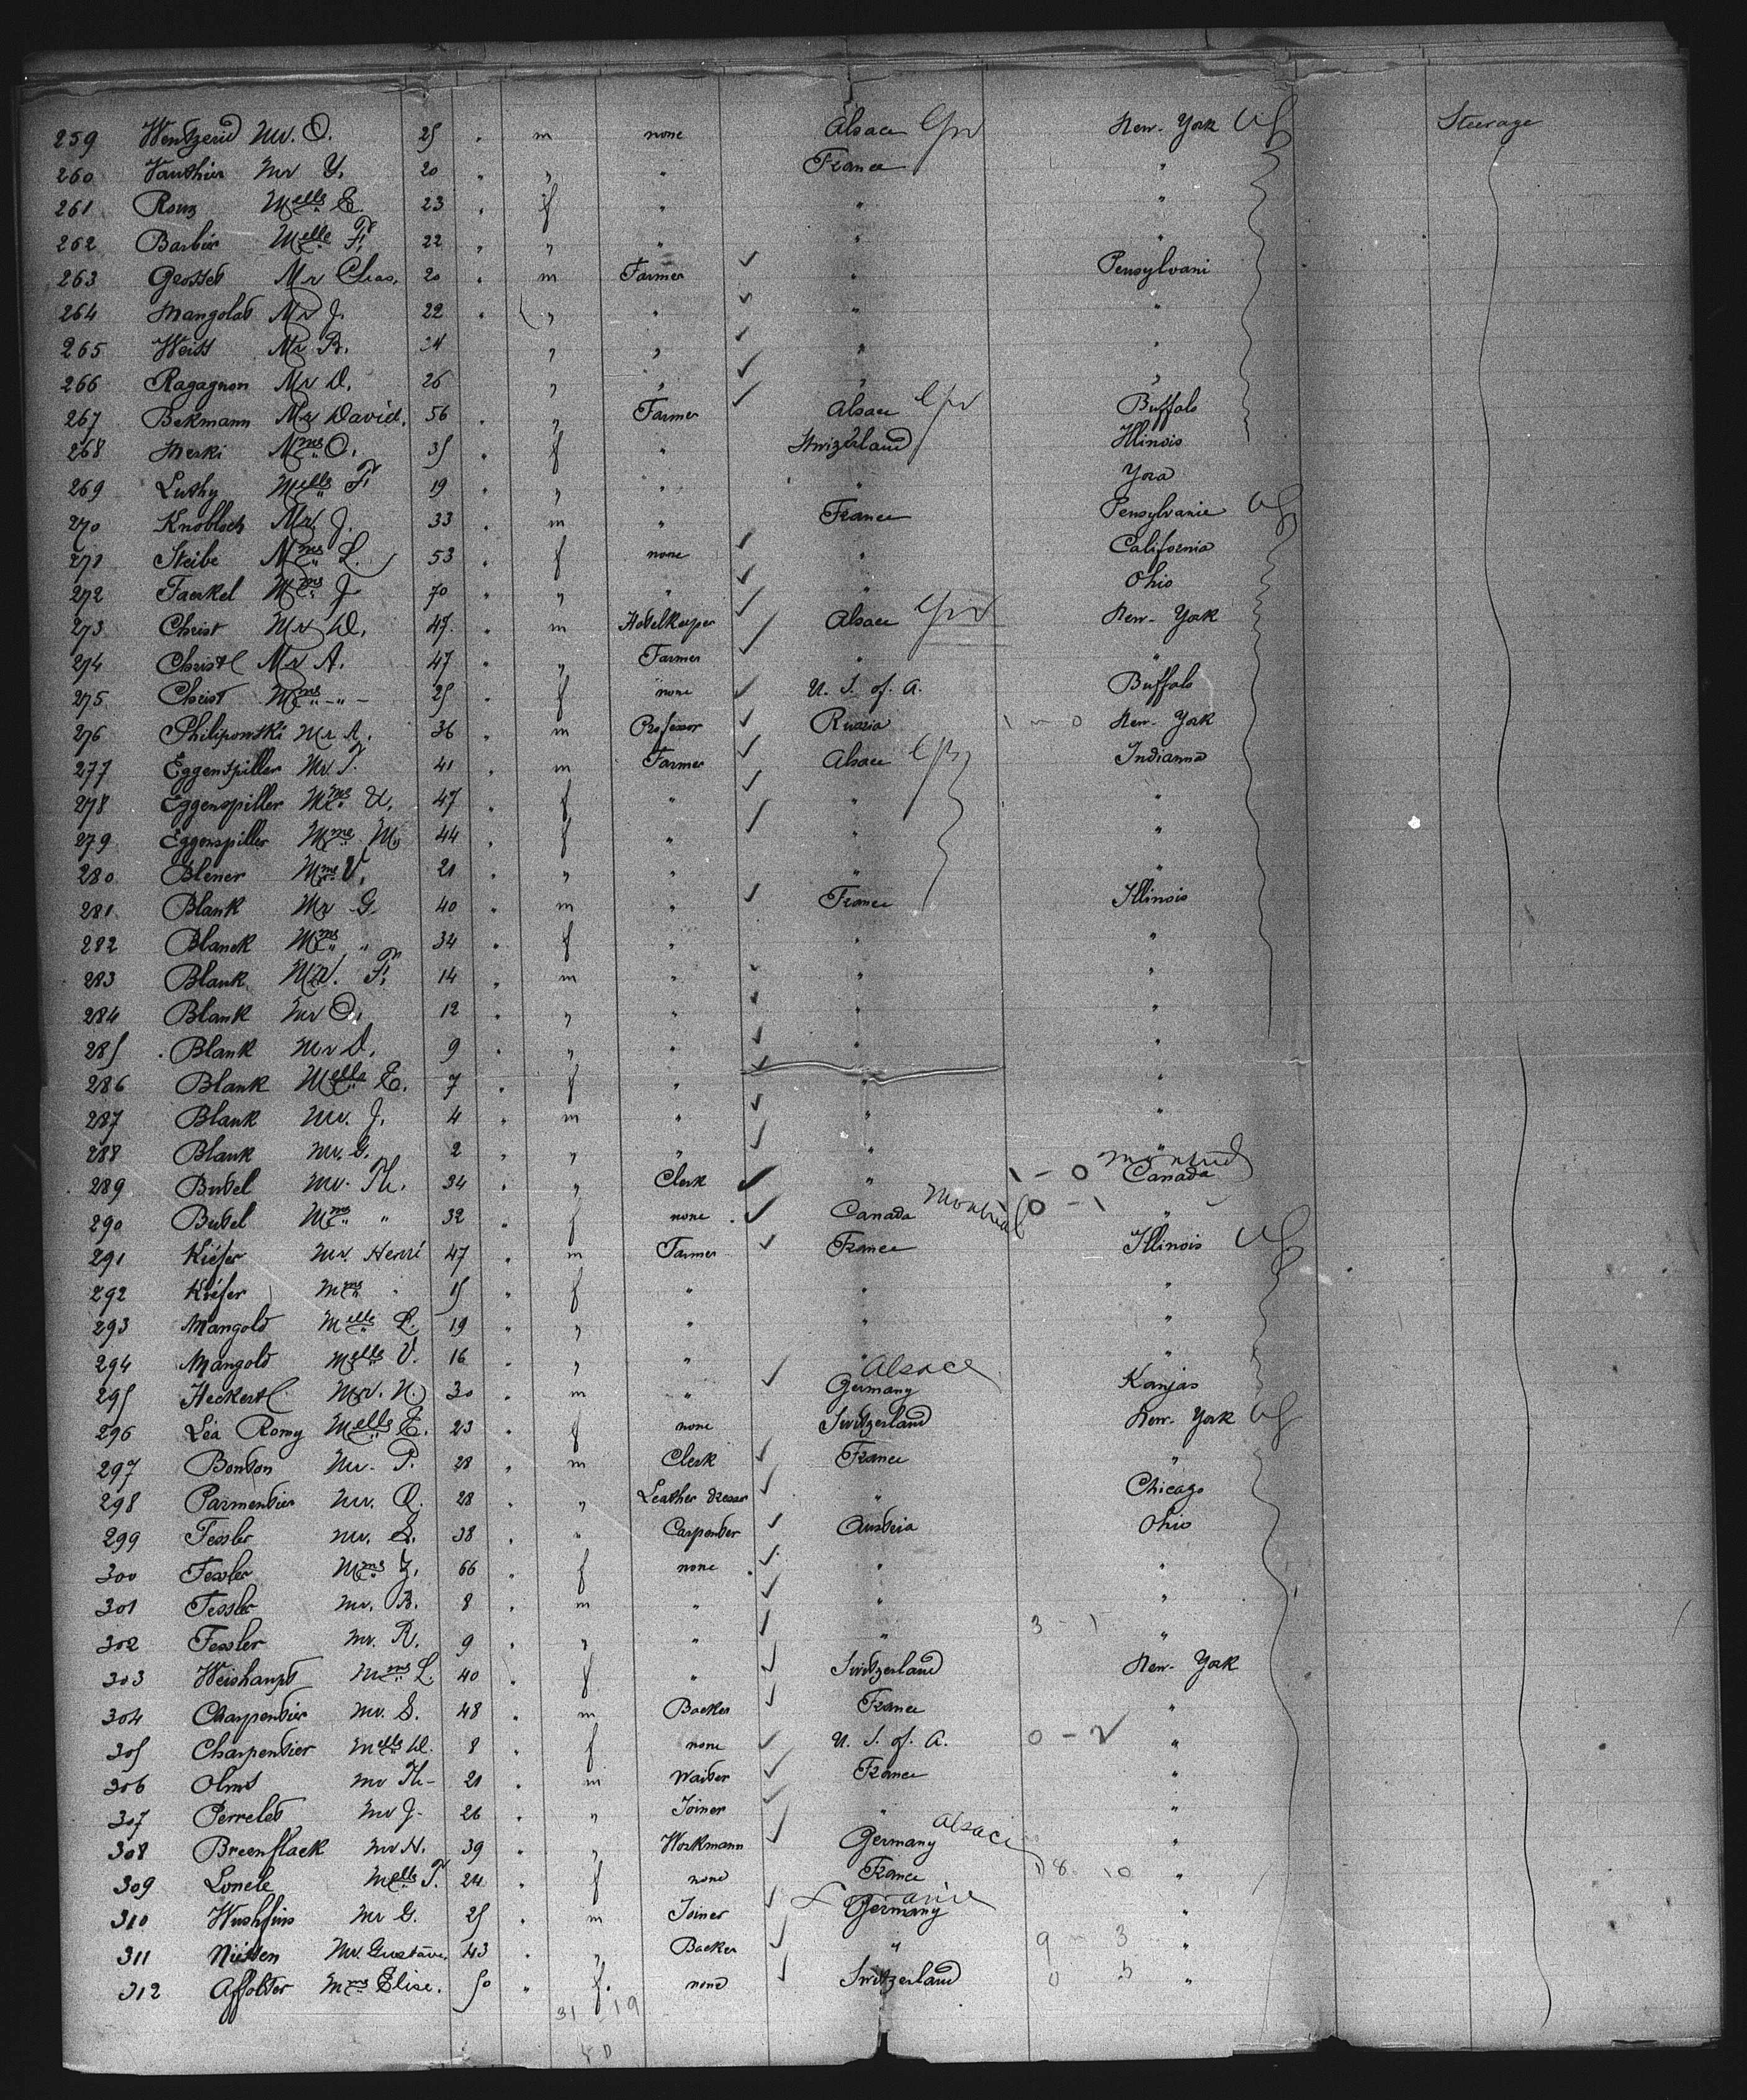 259 Mr. O. 25 " m none Alsace Ger New-York US Steerage
260 Vauthier Mr Y. 20 " " " France "
261 Roux Melle E. 23 " f " " "
262 Barbier Melle F. 22 " " " " "
263 Grosset Mr Chas. 20 " m Farmer " Pensylvani
264 Mangolat Mr J. 22 " " " " "
265 Weiss Mr B. 24 " " " "
266 Ragagnon Mr D. 26 " " " "
267 Bekmann Mr David. 56 " " Farmer Alsace Ger Buffalo
268 Merki Mme O. 35 " f " Swizerland Illinois
269 Luthy Melle F. 19 " " " " Yova
270 Knobloch Mr J. 33 " m " France Pensylvanie US
271 Steibe Mme L. 53 " f none " California
272 Faerkel Mme J. 70 " " " " Ohio
273 Christ Mr D. 47 " m Hotelkeeper Alsace Ger New-York
274 Christ Mr A. 47 " " Farmer " "
275 Christ Mme -"- 25 " f none U. S. of. A. Buffalo
276 Philipowski Mr A. 36 " m Professor Russia New-York
277 Eggenspiller Mr T. 41 " m Farmer Alsace Ger Indianna
278 Eggenspiller Mme U. 47 " f " " "
279 Eggenspiller Mme M. 44 " f " " "
280 Blener Mme V. 21 " " " " "
281 Blank Mr G. 40 " m " France Illinois
282 Blanck Mme " 34 " f " " "
283 Blank Mr. F. 14 " m " " "
284 Blank Mr O. 12 " " " " "
285 Blank Mr D. 9 " " " " "
286 Blank Melle E. 7 " f " " "
287 Blank Mr. J. 4 " m " " "
288 Blank Mr. G. 2 " " " " "
289 Butel Mr. Th. 34 " " Clerk " 1 - 0 Montreal Canada
290 Butel Mme " 32 " f none Canada Montreal 0 - 1 "
291 Kiéfer Mr. Henri 47 " m Farmer France Illinois US
292 Kiéfer Mme " 15 " f " " "
293 Mangold Melle L. 19 " " " " "
294 Mangold Melle V. 16 " " " " "
295 Heckert Mr. N. 30 " m " Germany Alsace Kanjas
296 Léa Romy Melle E. 23 " f none Switzerland New-York US
297 Bonbon Mr. P. 28 " m Clerk France "
298 Parmentier Mr. O. 28 " " Leather dresser " Chicago
299 Fessler Mr. S. 38 " " Carpenter Austria Ohio
300 Fessler Mme Z. 66 " f none " "
301 Fessler Mr. B. 8 " m " " "
302 Fessler Mr. R. 9 " " " " 3 - 1 "
303 Weishaupt Mme L. 40 " f " Switzerland New-York
304 Charpentier Mr. S. 48 " m Backer France "
305 Charpentier Melle D. 8 " f none U. S. of. A. 0 - 2 "
306 Olms Mr Th- 21 " m Waiter France "
307 Perrelet Mr J- 26 " " Joiner " "
308 Breenflack Mr H. 39 " " Workmann Germany Alsace "
309 Loncle Melle T. 24 " f none France 18 10 "
310 Mr G. 25 " m Joiner Germany "
311 Niessen Mr. Gustave. 43 " " Backer " 9 - 3 "
312 Affolter Mme Elise. 50 " f. none Switzerland 0 5 "
31 19